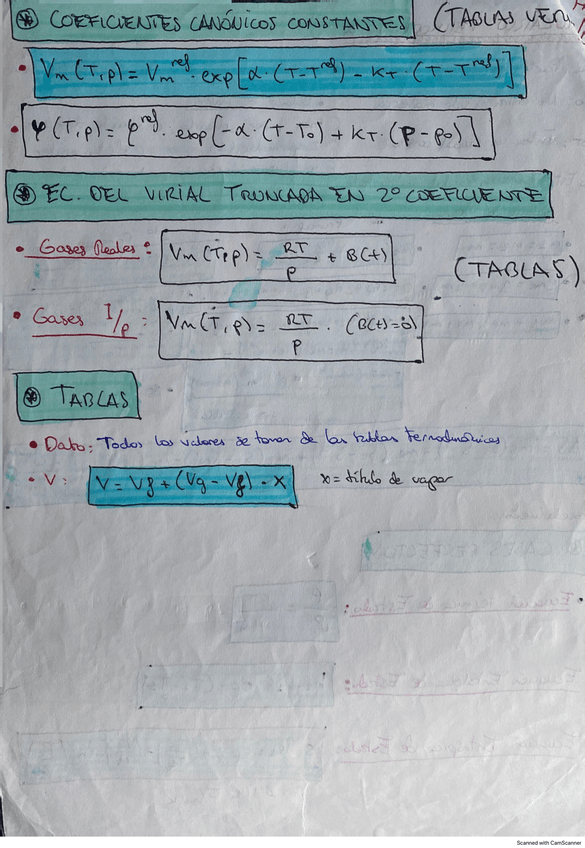 ⊛ COEFICIENTES CANÓNICOS CONSTANTES (TABLAS VERI
• Vm (T,p) = Vm^ref · exp[α·(T-T^ref) - KT·(T-T^ref)]
• φ(T,p) = φ^ref · exp[-α·(T-T₀) + KT·(P-p₀)]
⊛ EC. DEL VIRIAL TRUNCADA EN 2º COEFICIENTE
• Gases Reales: Vm(T,p) = RT/p + B(t)
(TABLA 5)
• Gases I/p: Vm(T,p) = RT/p · (B(t)=0)
⊛ TABLAS
• Dato: Todos los valores se toman de las tablas termodinámicas
• V: V = Vf + (Vg - Vf) · X x = título de vapor
Scanned with CamScanner